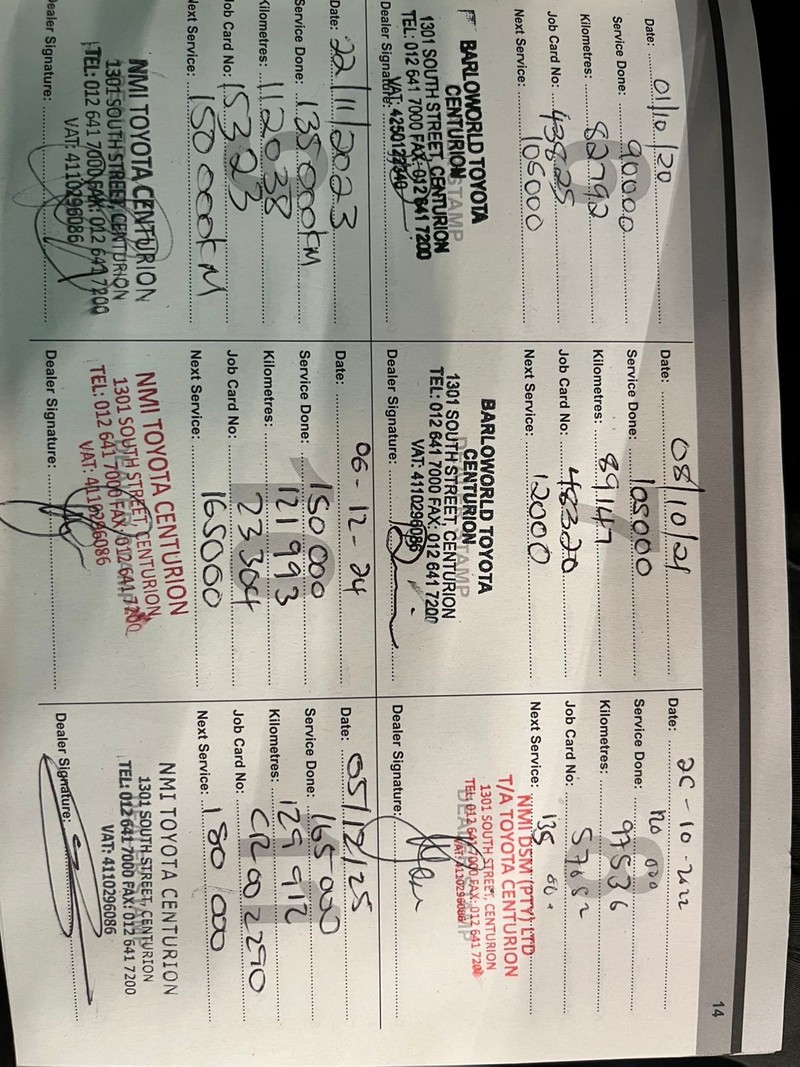 14
Date: 01/10/20
Service Done: 90000
Kilometres: 82792
Job Card No: 43825
Next Service: 105000
BARLOWORLD TOYOTA
CENTURION
1301 SOUTH STREET, CENTURION
TEL: 012 641 7000 FAX: 012 641 7200
Dealer Signature:
Date: 08/10/21
Service Done: 105000
Kilometres: 89147
Job Card No: 48320
Next Service: 12000
BARLOWORLD TOYOTA
CENTURION
1301 SOUTH STREET, CENTURION
TEL: 012 641 7000 FAX: 012 641 7200
VAT: 4110296086
Dealer Signature:
Date: 20-10-2022
Service Done: 120 000
Kilometres: 97536
Job Card No: 57652
Next Service: 135 000
NMI DSM (PTY) LTD
T/A TOYOTA CENTURION
1301 SOUTH STREET, CENTURION
TEL: 012 641 7000 FAX: 012 641 7200
VAT: 4110296086
Dealer Signature:
Date: 22/11/2023
Service Done: 135000KM
Kilometres: 112038
Job Card No: 15323
Next Service: 150 000KM
NMI TOYOTA CENTURION
1301 SOUTH STREET, CENTURION
TEL: 012 641 7000 FAX: 012 641 7200
VAT: 4110296086
Dealer Signature:
Date: 06-12-24
Service Done: 150 000
Kilometres: 121 993
Job Card No: 23304
Next Service: 165000
NMI TOYOTA CENTURION
1301 SOUTH STREET, CENTURION
TEL: 012 641 7000 FAX: 012 641 7200
VAT: 4110296086
Dealer Signature:
Date: 05/12/25
Service Done: 165 000
Kilometres: 129 912
Job Card No: CR002290
Next Service: 180 000
NMI TOYOTA CENTURION
1301 SOUTH STREET, CENTURION
TEL: 012 641 7000 FAX: 012 641 7200
VAT: 4110296086
Dealer Signature: